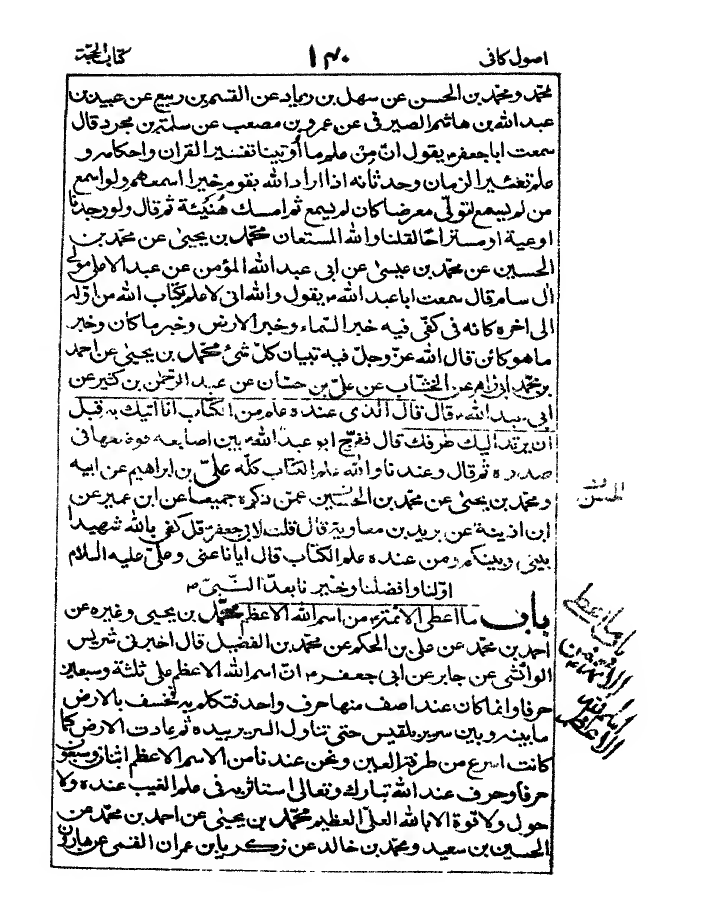 اصول كافى ١٤٠ كتاب الحجة
محمد و محمد بن الحسن عن سهل بن زياد عن القسم بن ربيع عن عبيد بن
عبد الله بن هاشم الصيرفى عن عمرو بن مصعب عن سلمة بن محرز قال
سمعت ابا جعفر ع يقول ان من علم ما أوتينا تفسير القران واحكامه و
علم تغيير الزمان وحدثانه اذا اراد الله بقوم خيرا اسمعهم ولو اسمع
من لم يسمع لتولى معرضا كان لم يسمع ثم امسك هُنَيْئَة ثم قال ولو وجدنا
اوعية او مستراحا لقلنا والله المستعان محمد بن يحيى عن محمد بن
الحسين عن محمد بن عيسى عن ابى عبد الله المؤمن عن عبد الاعلى مولى
ال سام قال سمعت ابا عبد الله ع يقول والله انى لاعلم كتاب الله من اوله
الى اخره كانه فى كفى فيه خبر السماء وخبر الارض وخبر ما كان وخبر
ما هو كائن قال الله عز وجل فيه تبيان كل شئ محمد بن يحيى عن احمد
بن محمد ابى زاهر عن الخشاب عن على بن حسان عن عبد الرحمن بن كثير عن
ابى عبد الله ع قال قال الذى عنده علم من الكتاب انا اتيك به قبل
ان يرتد اليك طرفك قال ففرج ابو عبد الله ع بين اصابعه فوضعها فى
صدره ثم قال وعندنا والله علم الكتاب كله على بن ابراهيم عن ابيه
ومحمد بن يحيى عن محمد بن الحسين عمن ذكره جميعا عن ابن عمير عن
الحسن
ابن اذينة عن بريد بن معاوية قال قلت لابى جعفر ع قل كفى بالله شهيدا
بينى وبينكم ومن عنده علم الكتاب قال ايانا عنى وعلى عليه السلام
اولنا وافضلنا وخيرنا بعد النبى ص
باب ما اعطى الائمة ع من اسم الله الاعظم محمد بن يحيى وغيره عن
احمد بن محمد عن على بن الحكم عن محمد بن الفضيل قال اخبرنى شريس
الوابشى عن جابر عن ابى جعفر ع ان اسم الله الاعظم على ثلثة وسبعين
حرفا وانما كان عند اصف منها حرف واحد فتكلم به فخسف بالارض
ما بينه وبين سرير بلقيس حتى تناول السرير بيده ثم عادت الارض كما
كانت اسرع من طرفة العين ونحن عندنا من الاسم الاعظم اثنان وسبعون
حرفا وحرف عند الله تبارك وتعالى استاثر به فى علم الغيب عنده ولا
حول ولا قوة الا بالله العلى العظيم محمد بن يحيى عن احمد بن محمد عن
الحسين بن سعيد ومحمد بن خالد عن زكريا بن عمران القمى عن هارون
باب ما اعطى
الائمة
الاعظم